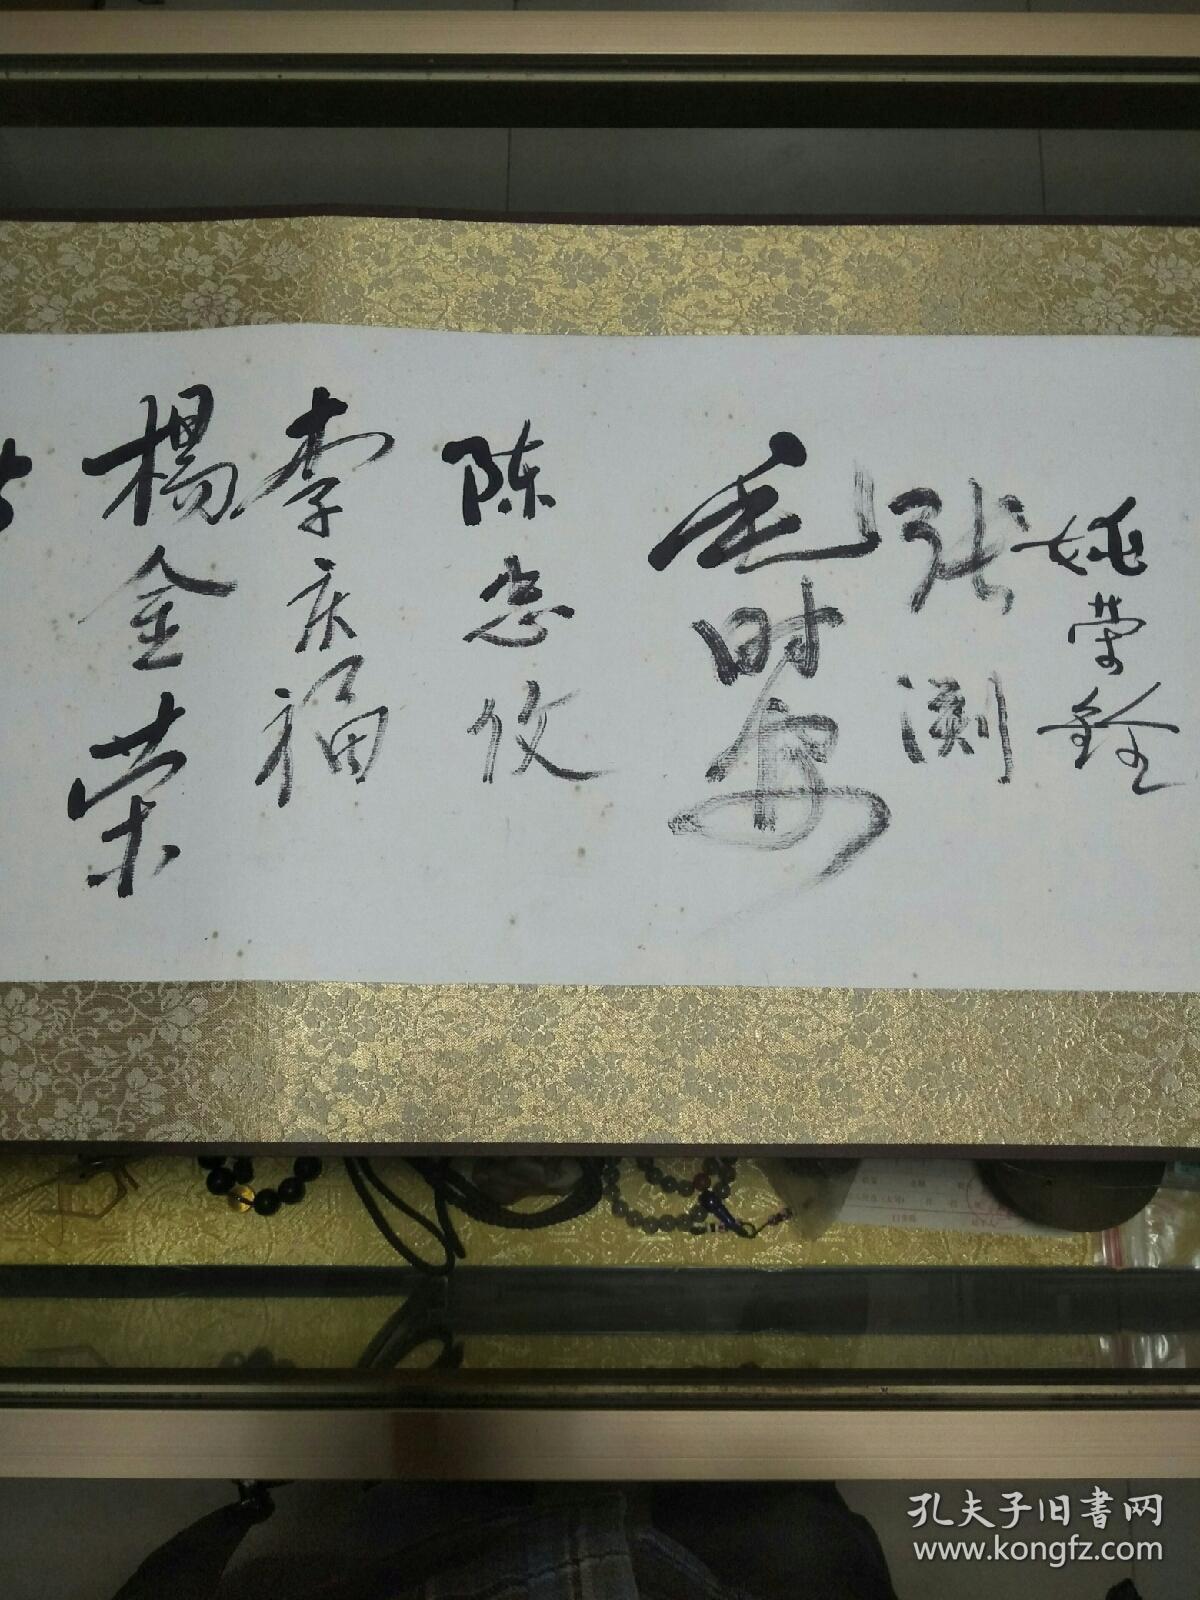 姚荣铨
张渊
毛时安
陈忠仪
李庆福
楊金荣
孔夫子旧书网
www.kongfz.com